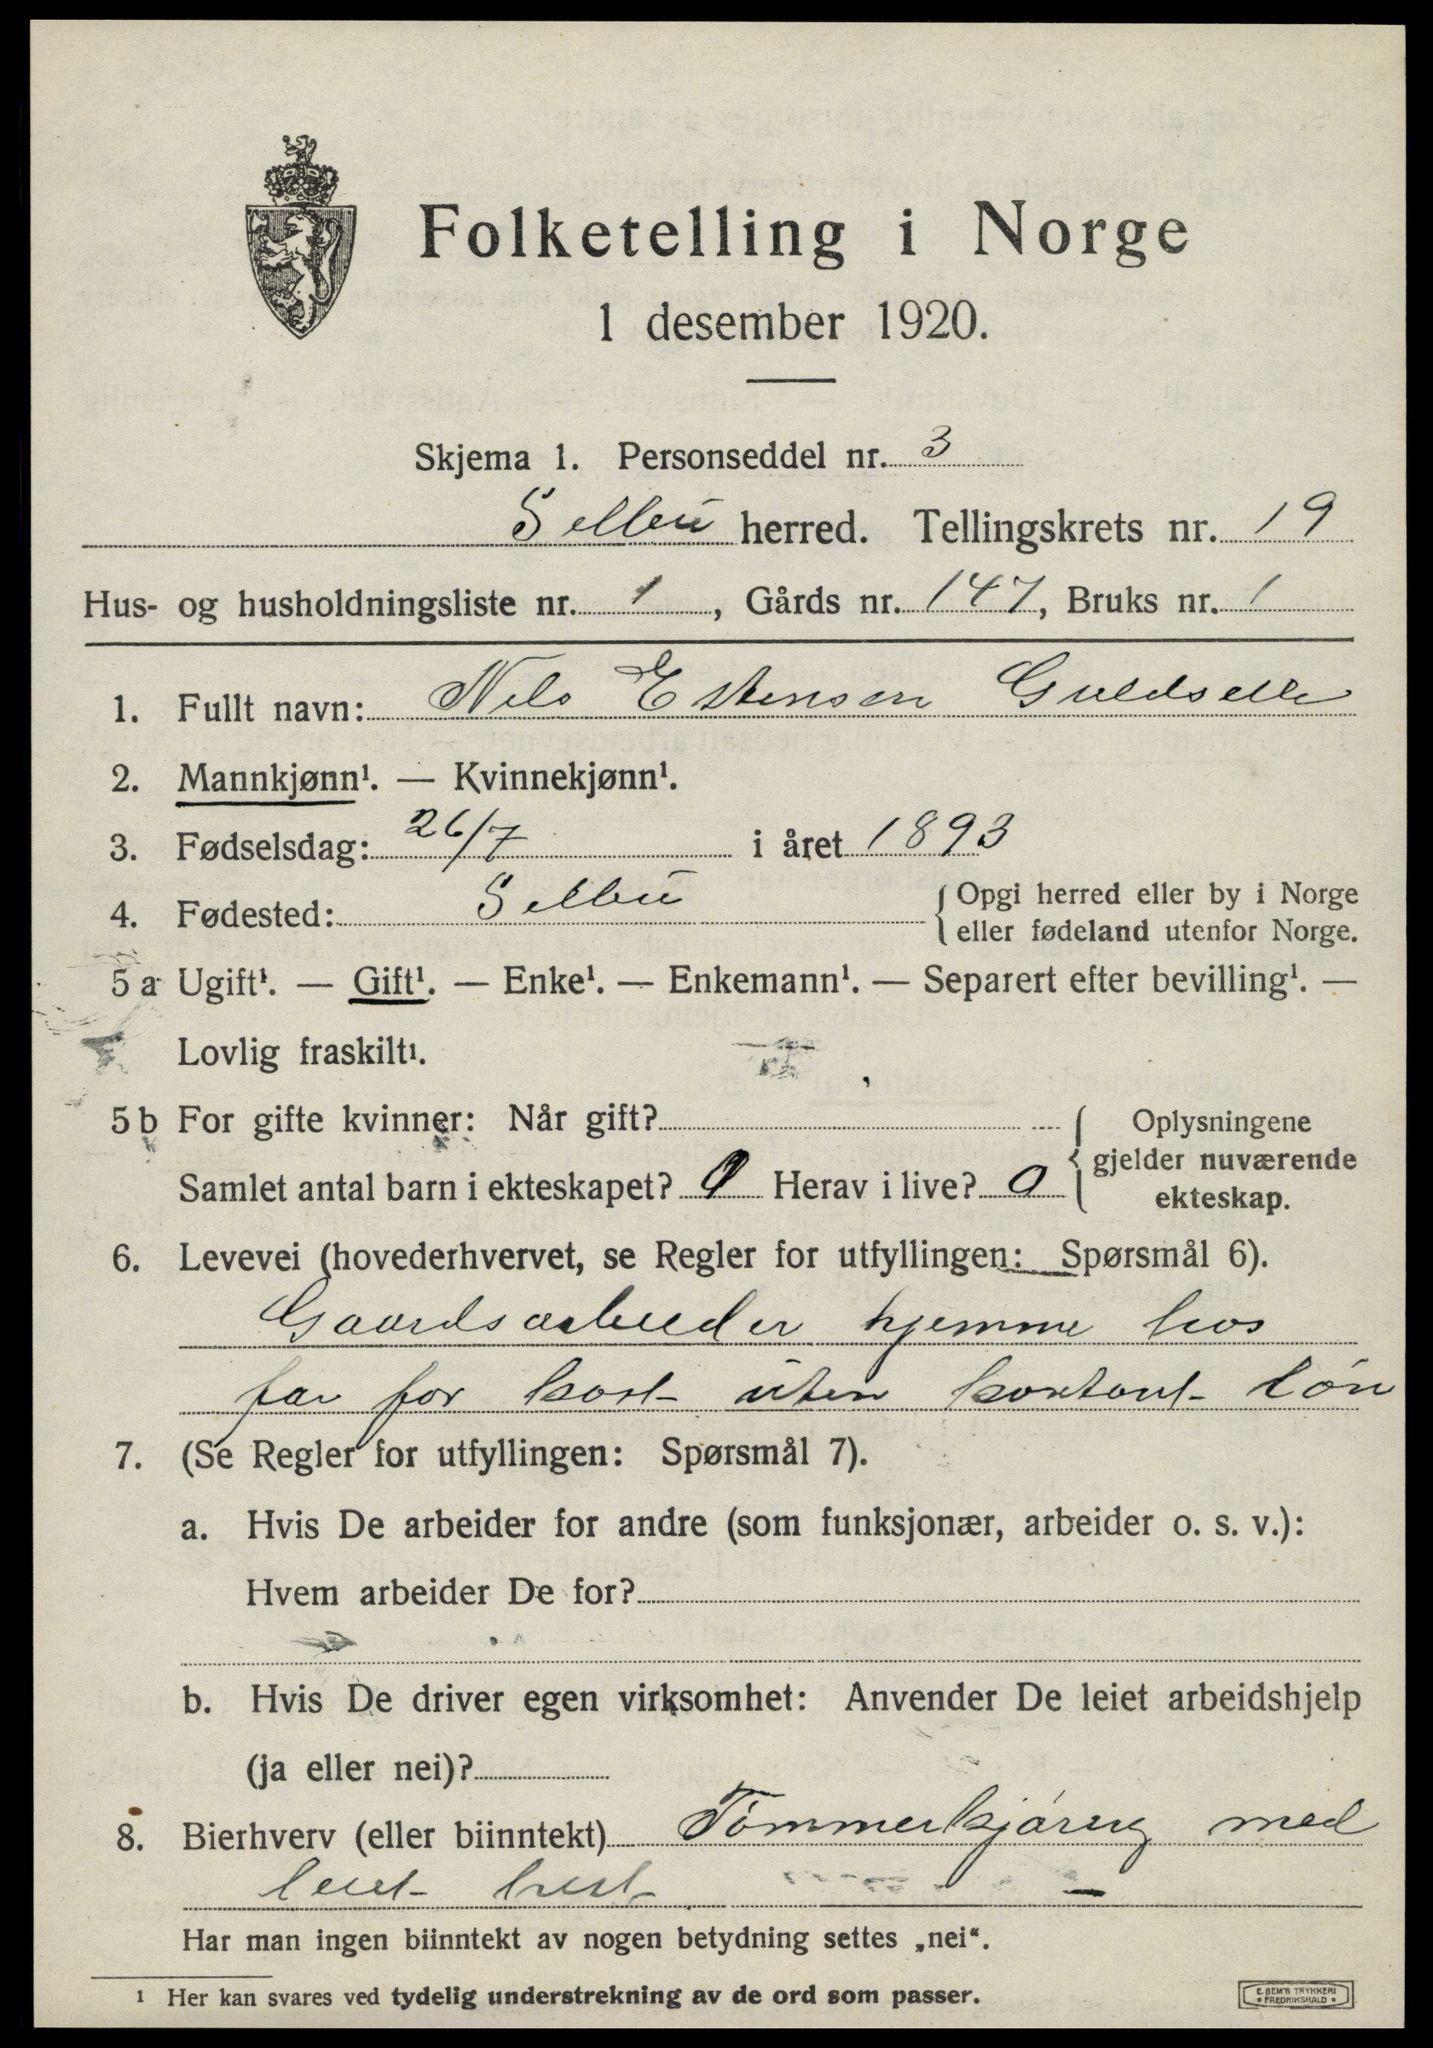 Folketelling i Norge
1 desember 1920.
Skjema 1. Personseddel nr. 3
Selbu herred. Tellingskrets nr. 19
Hus- og husholdningsliste nr. 1, Gårds nr. 147, Bruks nr. 1
1. Fullt navn: Nils Estensen Guldseth
2. Mannkjønn¹. — Kvinnekjønn¹.
3. Fødselsdag: 26/7 i året 1893
4. Fødested: Selbu { Opgi herred eller by i Norge
eller fødeland utenfor Norge.
5 a Ugift¹. — Gift¹. — Enke¹. — Enkemann¹. — Separert efter bevilling¹. —
Lovlig fraskilt¹.
5 b For gifte kvinner: Når gift?
Samlet antal barn i ekteskapet? 0 Herav i live? 0
{ Oplysningene
gjelder nuværende
ekteskap.
6. Levevei (hovederhvervet, se Regler for utfyllingen: Spørsmål 6).
Gaardsarbeider hjemme hos
far for kost uten kontant løn
7. (Se Regler for utfyllingen: Spørsmål 7).
a. Hvis De arbeider for andre (som funksjonær, arbeider o. s. v.):
Hvem arbeider De for?
b. Hvis De driver egen virksomhet: Anvender De leiet arbeidshjelp
(ja eller nei)?
8. Bierhverv (eller biinntekt) Tømmerkjøring med
leiet hest
Har man ingen biinntekt av nogen betydning settes „nei“.
¹ Her kan svares ved tydelig understrekning av de ord som passer.
E. SEM'S TRYKKERI
• FREDRIKSHALD •